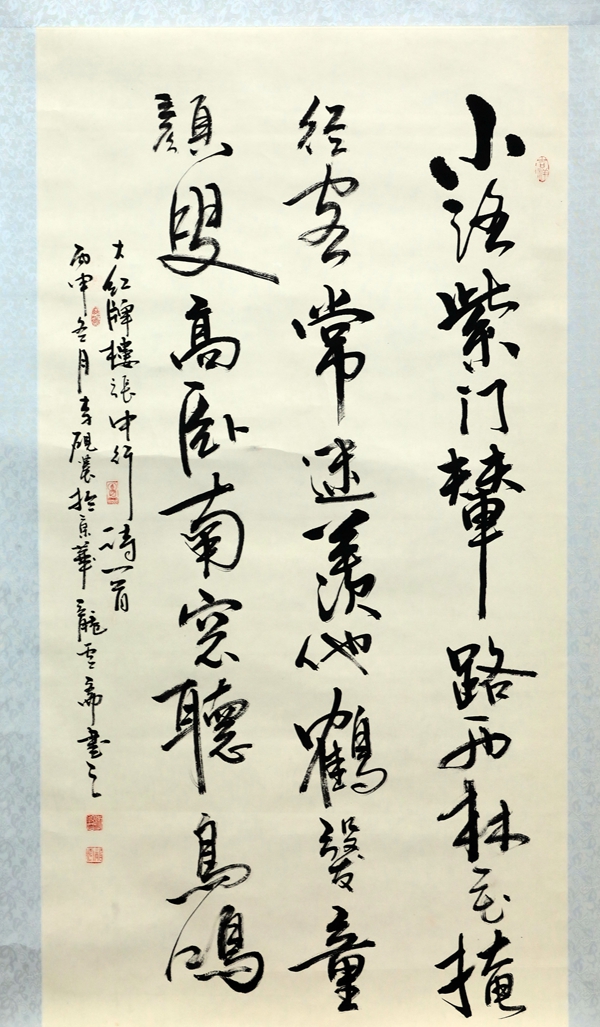 小紫门輦路西林花掩
径客常迷羡他鶴發童
顏叟高卧南窓聽鳥鳴
大红牌樓張中行詩一首
丙申冬月硯農於京華龍雲齋書之